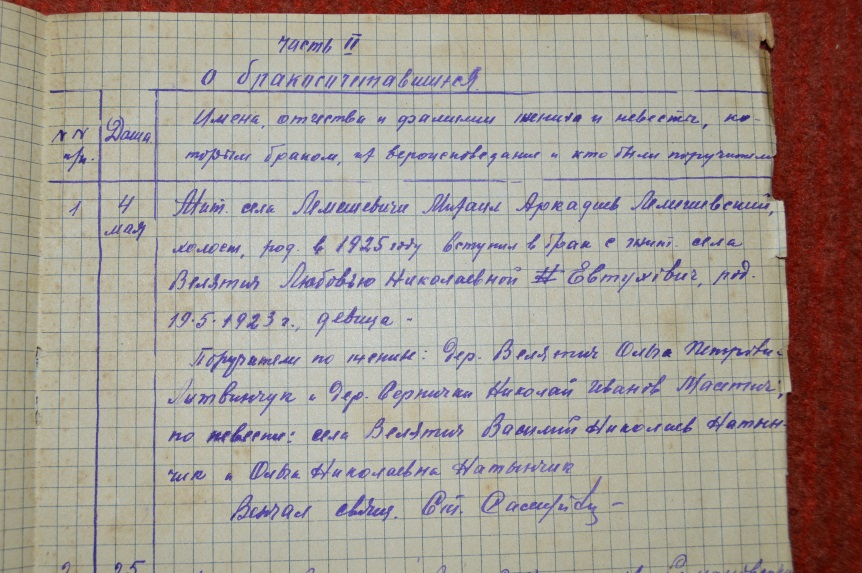 Часть II
О бракосочетавшихся
NN п/п. Дата Имена, отчества и фамилии жениха и невесты, ко-
торым браком, их вероисповедание и кто были поручители
1 4 мая Жит. села Лемешевичи Михаил Аркадиев Лемешевский,
холост, род. в 1925 году вступил в брак с жит. села
Велятич Любовью Николаевной Евтухович, род.
19.5.1923 г., девица -
Поручители по жениху: дер. Велятич Ольга Петровн.
Литвинчук и дер. Сернички Николай Иванов
по невесте: села Велятич Василий Николаев Натын-
чик и Ольга Николаевна Натынчик
Венчал свящ. Ст.
2 25